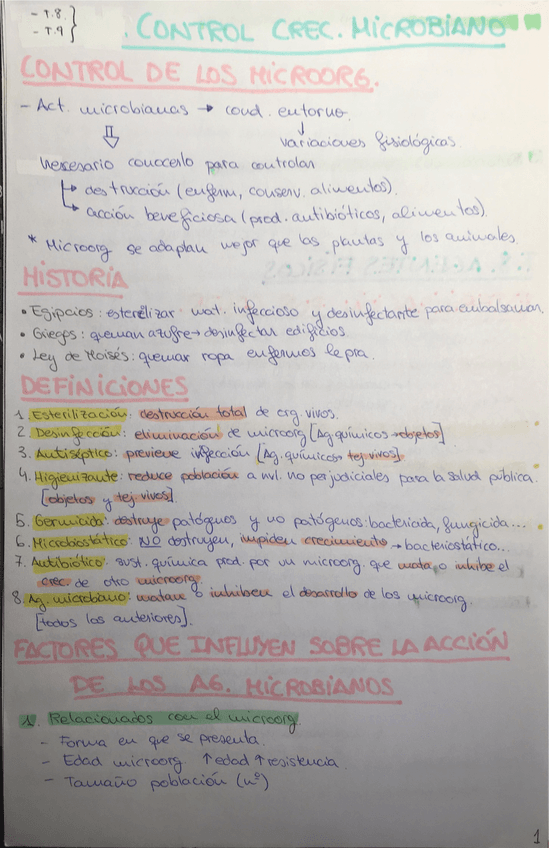 - T.8
- T.9
. CONTROL CREC. MICROBIANO
CONTROL DE LOS MICROORG.
- Act. microbianas → cond. entorno.
↓
variaciones fisiológicas
⇓
Necesario conocerlo para controlar
↳ destrucción (enferm, conserv. alimentos).
↳ acción beneficiosa (prod. antibióticos, alimentos).
* Microorg se adaptan mejor que las plantas y los animales.
HISTORIA
• Egipcios: esterilizar mat. infeccioso y desinfectante para embalsamar.
• Griegos: queman azufre → desinfectar edificios.
• Ley de Moisés: quemar ropa enfermos lepra.
DEFINICIONES
1. Esterilización: destrucción total de org. vivos.
2. Desinfección: eliminación de microorg [Ag. químicos → objetos]
3. Antiséptico: previene infección [Ag. químicos tej vivos]
4. Higienizante: reduce población a nvl. no perjudiciales para la salud pública.
[objetos y tej. vivos]
5. Germicida: destruye patógenos y no patógenos: bactericida, fungicida...
6. Microbiostático: NO destruyen, impiden crecimiento → bacteriostático...
7. Antibiótico: sust. química prod. por un microorg. que mata o inhibe el
crec de otro microorg.
8. Ag. microbiano: matan o inhiben el desarrollo de los microorg.
[todos los anteriores].
FACTORES QUE INFLUYEN SOBRE LA ACCIÓN
DE LOS AG. MICROBIANOS
1. Relacionados con el microorg.
- Forma en que se presenta.
- Edad microorg ↑edad ↑resistencia.
- Tamaño población (nº)
1